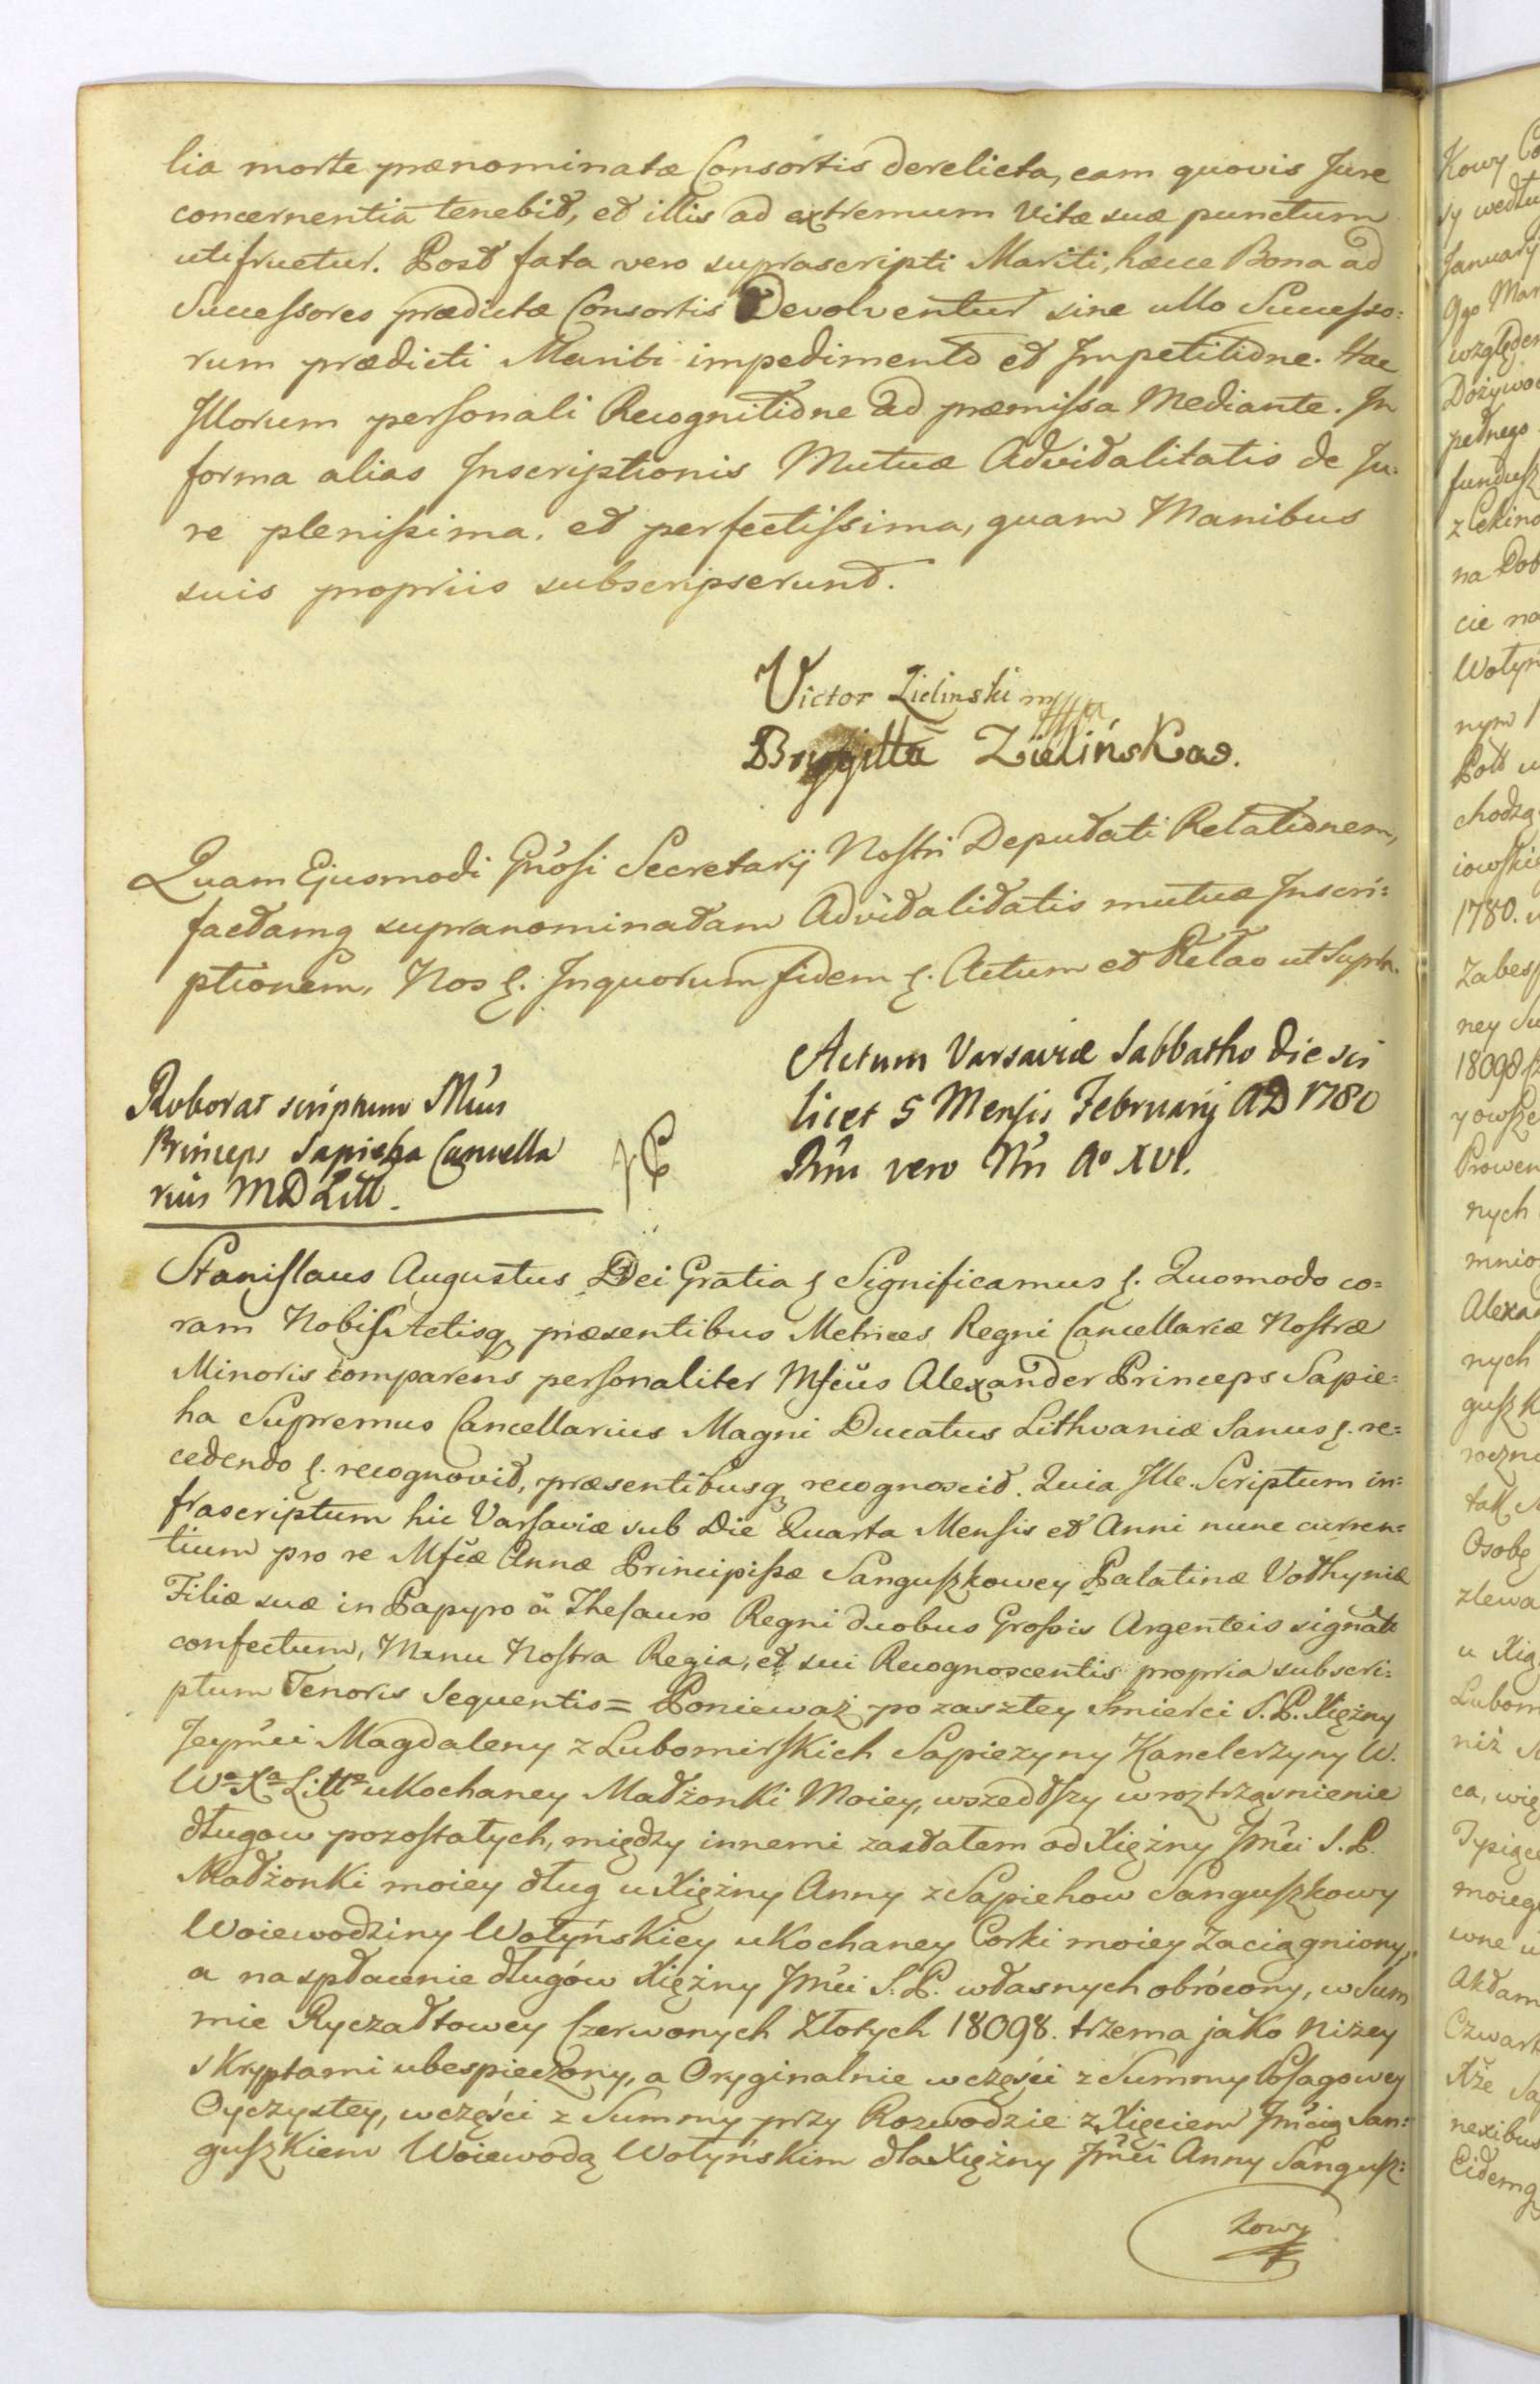 lia morte prænominatæ Consortis derelicta, eam quovis Jure
concernentia tenebit, et illis ad extremum Vitæ suæ punctum
utifruetur. Post fata vero suprascripti Mariti, hæcce Bona ad
Successores prædictæ Consortis Devolventur sine ullo Successo:
rum prædicti Mariti impedimento et Impetitione. Hac
Illorum personali Recognitione ad præmissa Mediante. In
forma alias Inscriptionis Mutuæ Advitalitatis de Ju:
re plenissima, et perfectissima, quam Manibus
suis propriis subscripserunt.
Victor Zielinski mppa
Brygitta Zielińska
Quam Ejusmodi Gnosi Secretarÿ Nostri Deputati Relationem,
factamq supranominatam Advitalitatis mutuæ Inscri:
ptionem, Nos &. Inquorum fidem &. Actum et Relao ut Supra.
Roborat scriptum Mcus
Princeps Sapieha Cancella
rius MDLitt.
Actum Varsaviæ Sabbatho die sci
licet 5 Mensis Februarÿ AD 1780
Rni vero Nri Ao XVI.
Stanislaus Augustus Dei Gratia & Significamus &. Quomodo co=
ram Nobis Actisq præsentibus Metrices Regni Cancellariæ Nostræ
Minoris comparens personaliter Mfcus Alexander Princeps Sapie=
ha Supremus Cancellarius Magni Ducatus Lithvaniæ Sanus &. re=
cedendo &. recognovit, præsentibusq recognoscit. Quia Ille Scriptum in=
frascriptum hic Varsaviæ sub Die Quarta Mensis et Anni nunc curren=
tium pro re Mfcæ Annæ Principissæ Sanguszkowey Palatinæ Volhyniæ
Filiæ suæ in Papyro à Thesauro Regni duobus Grossis Argenteis signata
confectum, Manu Nostra Regia, et sui Recognoscentis propria subscri:
ptum Tenoris Sequentis = Ponieważ po zaszłey śmierci S.P. Xiężny
Jeymci Magdaleny z Lubomirskich Sapieżyny Kanclerzyny W.
Wo Xa Litto ukochaney Małżonki Moiey, wszedłszy w roztrząsnienie
długow pozostałych, między innemi zastałem od Xiężny Jmci S.P.
Małżonki moiey dług u Xiężny Anny z Sapiehow Sanguszkowy
Woiewodziny Wołyńskiey ukochaney Corki moiey zaciągniony,
a na spłacenie długów Xiężny Jmci S.P. własnych obrócony, w Sum
mie Ryczałtowey Czerwonych Złotych 18098. trzema jako niżey
skryptami ubespieczony, a Oryginalnie w części z Summy Posagowey
Oyczystey, w części z Summy przy Rozwodzie z Xięciem Jmcią San:
guszkiem Woiewodą Wołyńskim dla Xiężny Jmci Anny Sangusz:
kowy
Kowy
sy wedłu
January
względem
pełnego
fundusz
na Dob
cie na
Wołyń
nym
chodzą
1780.
Zabesp
ney Su
18098
Prowen
nych
mnio
Alexan
nych
guszk
roczne
tak
Osobę
zlewa
u Xię
Lubom
niż
ca, wię
Tysięcy
moiego
wne
Aktam
Czwart
Xże Sa
nexibus
Eidemq